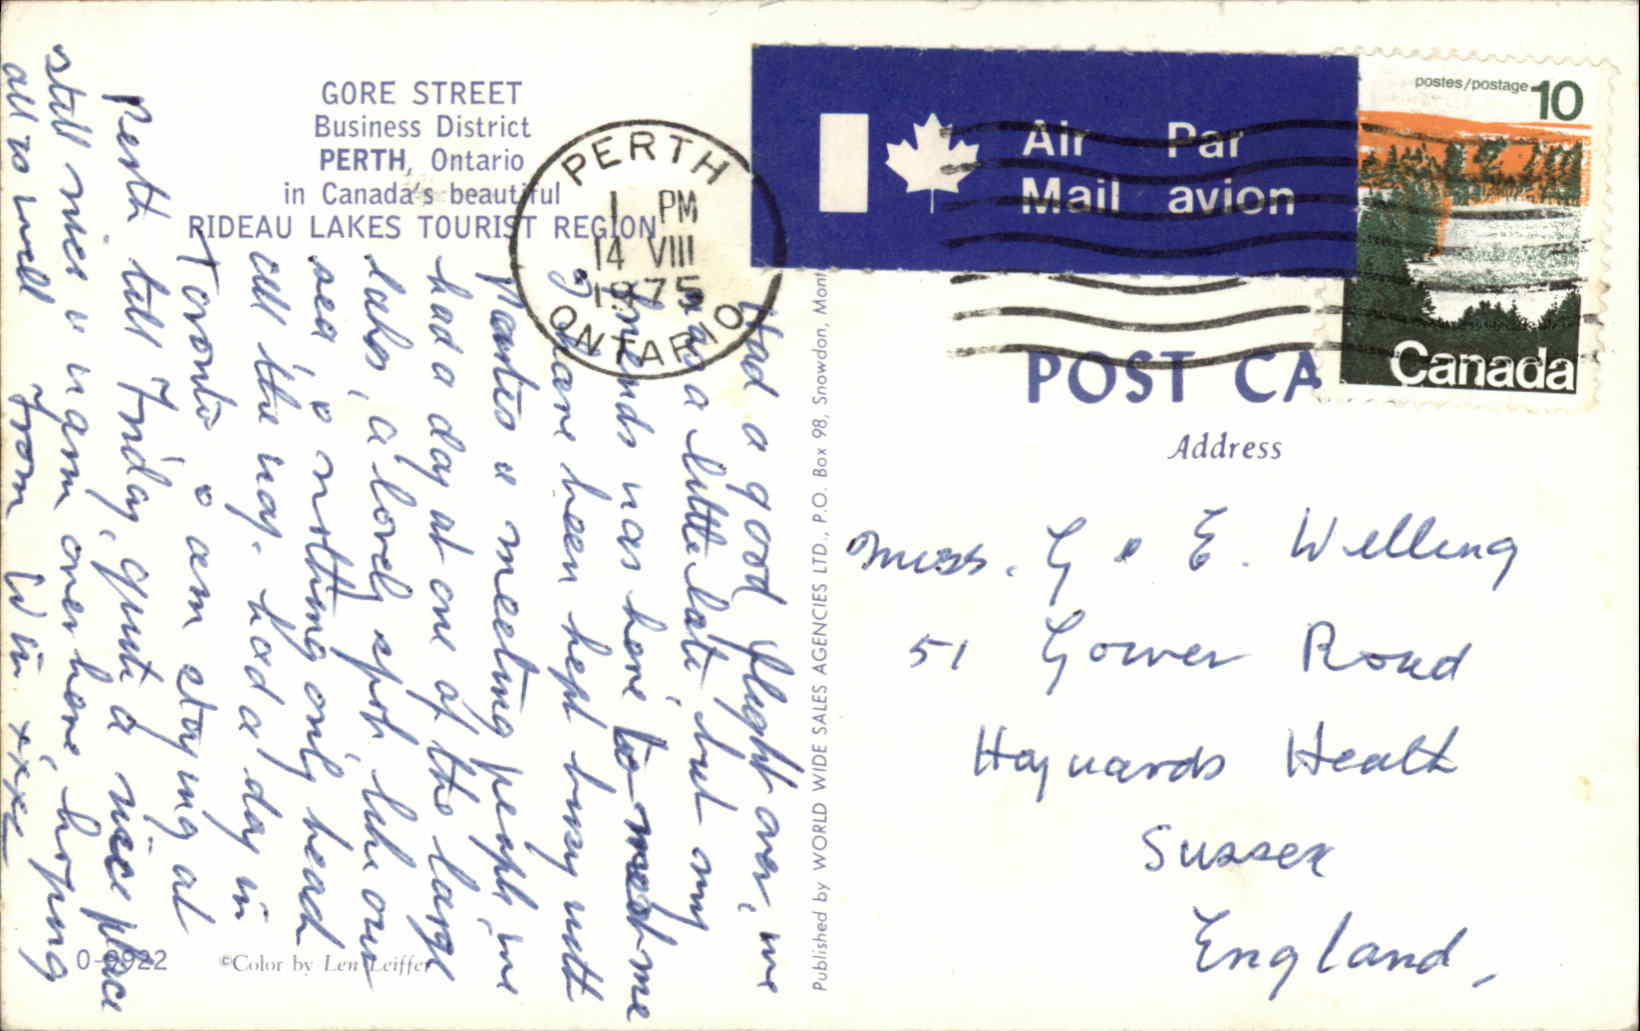 GORE STREET
Business District
PERTH, Ontario
in Canada's beautiful
RIDEAU LAKES TOURIST REGION
PERTH
1 PM
14 VIII
1975
ONTARIO
Air Par
Mail avion
postes/postage 10
Canada
POST CA
Address
Miss. G & E. Welling
51 Gower Road
Haywards Heath
Sussex
England,
Had a good flight over, we
was a little late but my
friends was here to meet me
I have been kept busy with
Parties & meeting people, we
had a day at one of the large
lakes, a lovely spot, like our
sea, & nothing only head
all the way. had a day in
Toronto & am staying at
Perth till Friday, quite a nice place
still nice & warm over here, hoping
all is well From Win. xxx
Published by WORLD WIDE SALES AGENCIES LTD., P.O. Box 98, Snowdon, Mont
O-9922
©Color by Len Leiffer